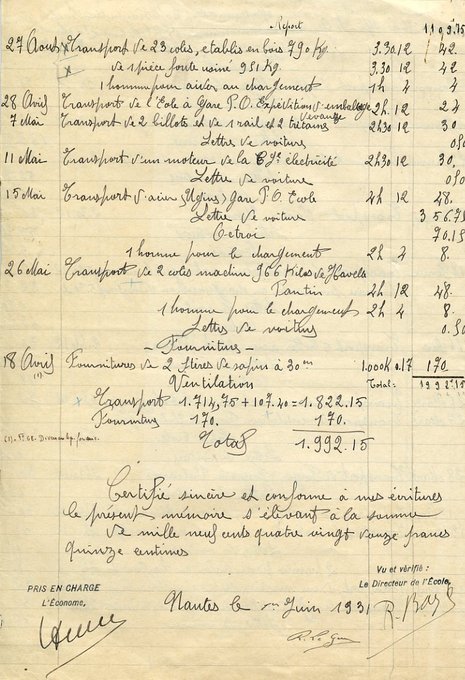 Report 1192.15
27 Aout Transport de 23 colis, etables en bois 790 Kg. 3.30 12 42.
de 1 pièce fonte usiné 951 Kg. 3.30 12 42
1 homme pour aider au chargement 1h 4 4
28 Avril Transport de l'Ecole à Gare P.O. Expéditions d'emballage 2h. 12 24
7 Mai Transport de 2 billots et de 1 rail et 2 2h30 12 30
Lettre de voiture 0.50
11 Mai Transport d'un moteur de la Cie électricité 2h30 12 30.
Lettre de voiture 0.50
15 Mai Transport d'acier (Ugine) Gare P.O. Ecole 4h 12 48.
Lettre de voiture 356.75
Octroi 70.15
1 homme pour le chargement 2h 4 8.
26 Mai Transport de 2 colis machine 966 Kilos de
Pantin 4h 12 48.
1 homme pour le chargement 2h 4 8.
Lettres de voitures 0.50
- Fournitures -
18 Avril Fournitures de 2 stères de sapin à 30 cm 1.000K 0.17 170.
(1) Ventilation Total: 1992.15
Transport 1.714,75 + 107.40 = 1.822.15
Fournitures 170. 170.
Total 1.992.15
Certifié sincère et conforme à mes écritures
le présent mémoire s'élevant à la somme
de mille neuf cents quatre vingt douze francs
quinze centimes
Vu et vérifié :
PRIS EN CHARGE Le Directeur de l'École,
L'Économe,
Nantes le 1er Juin 1931